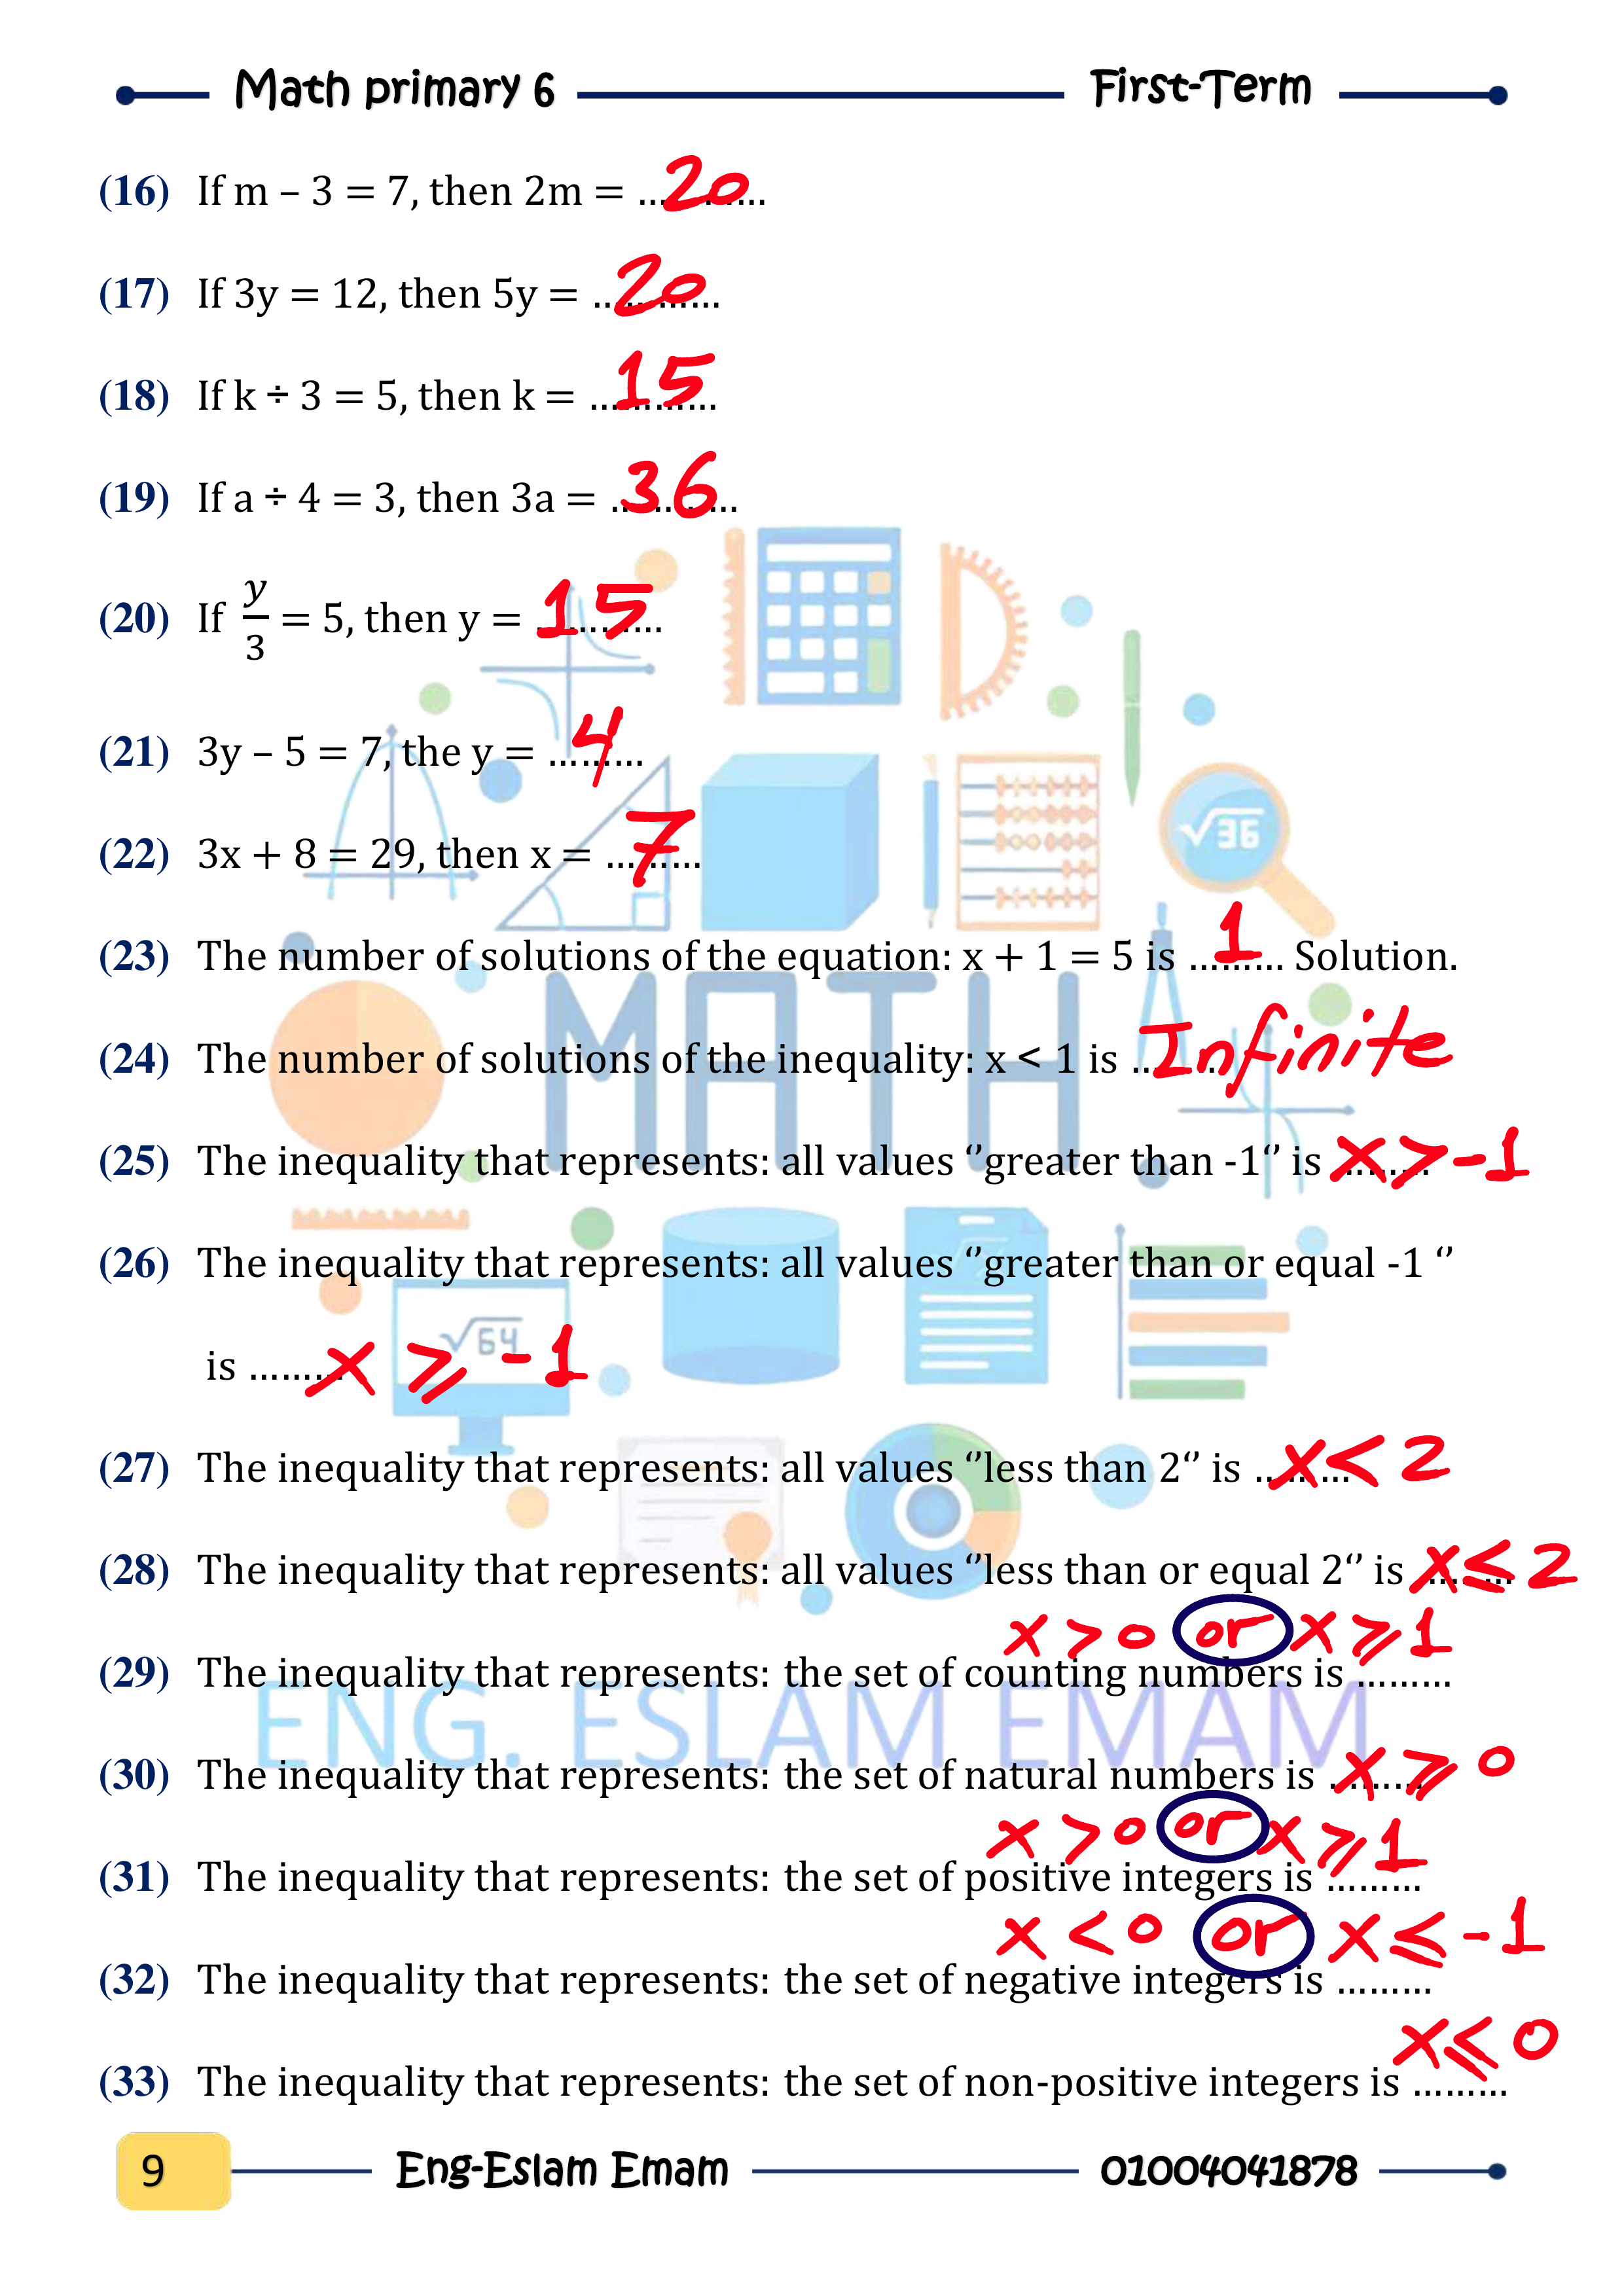 Math primary 6 First-Term
(16) If m – 3 = 7, then 2m = ............ 20
(17) If 3y = 12, then 5y = ............ 20
(18) If k ÷ 3 = 5, then k = ............ 15
(19) If a ÷ 4 = 3, then 3a = ............ 36
(20) If y/3 = 5, then y = ............ 15
(21) 3y – 5 = 7, the y = ......... 4
(22) 3x + 8 = 29, then x = ......... 7
(23) The number of solutions of the equation: x + 1 = 5 is ......... 1 Solution.
(24) The number of solutions of the inequality: x < 1 is ......... Infinite
(25) The inequality that represents: all values ‘’greater than -1‘’ is ......... x > -1
(26) The inequality that represents: all values ‘’greater than or equal -1 ‘’
is ......... x ⩾ -1
(27) The inequality that represents: all values ‘’less than 2‘’ is ......... x < 2
(28) The inequality that represents: all values ‘’less than or equal 2‘’ is ......... x ⩽ 2
x > 0 or x ⩾ 1
(29) The inequality that represents: the set of counting numbers is .........
(30) The inequality that represents: the set of natural numbers is ......... x ⩾ 0
x > 0 or x ⩾ 1
(31) The inequality that represents: the set of positive integers is .........
x < 0 or x ⩽ -1
(32) The inequality that represents: the set of negative integers is .........
x ⩽ 0
(33) The inequality that represents: the set of non-positive integers is .........
√36
MATH
√64
ENG. ESLAM EMAM
9 Eng-Eslam Emam 01004041878